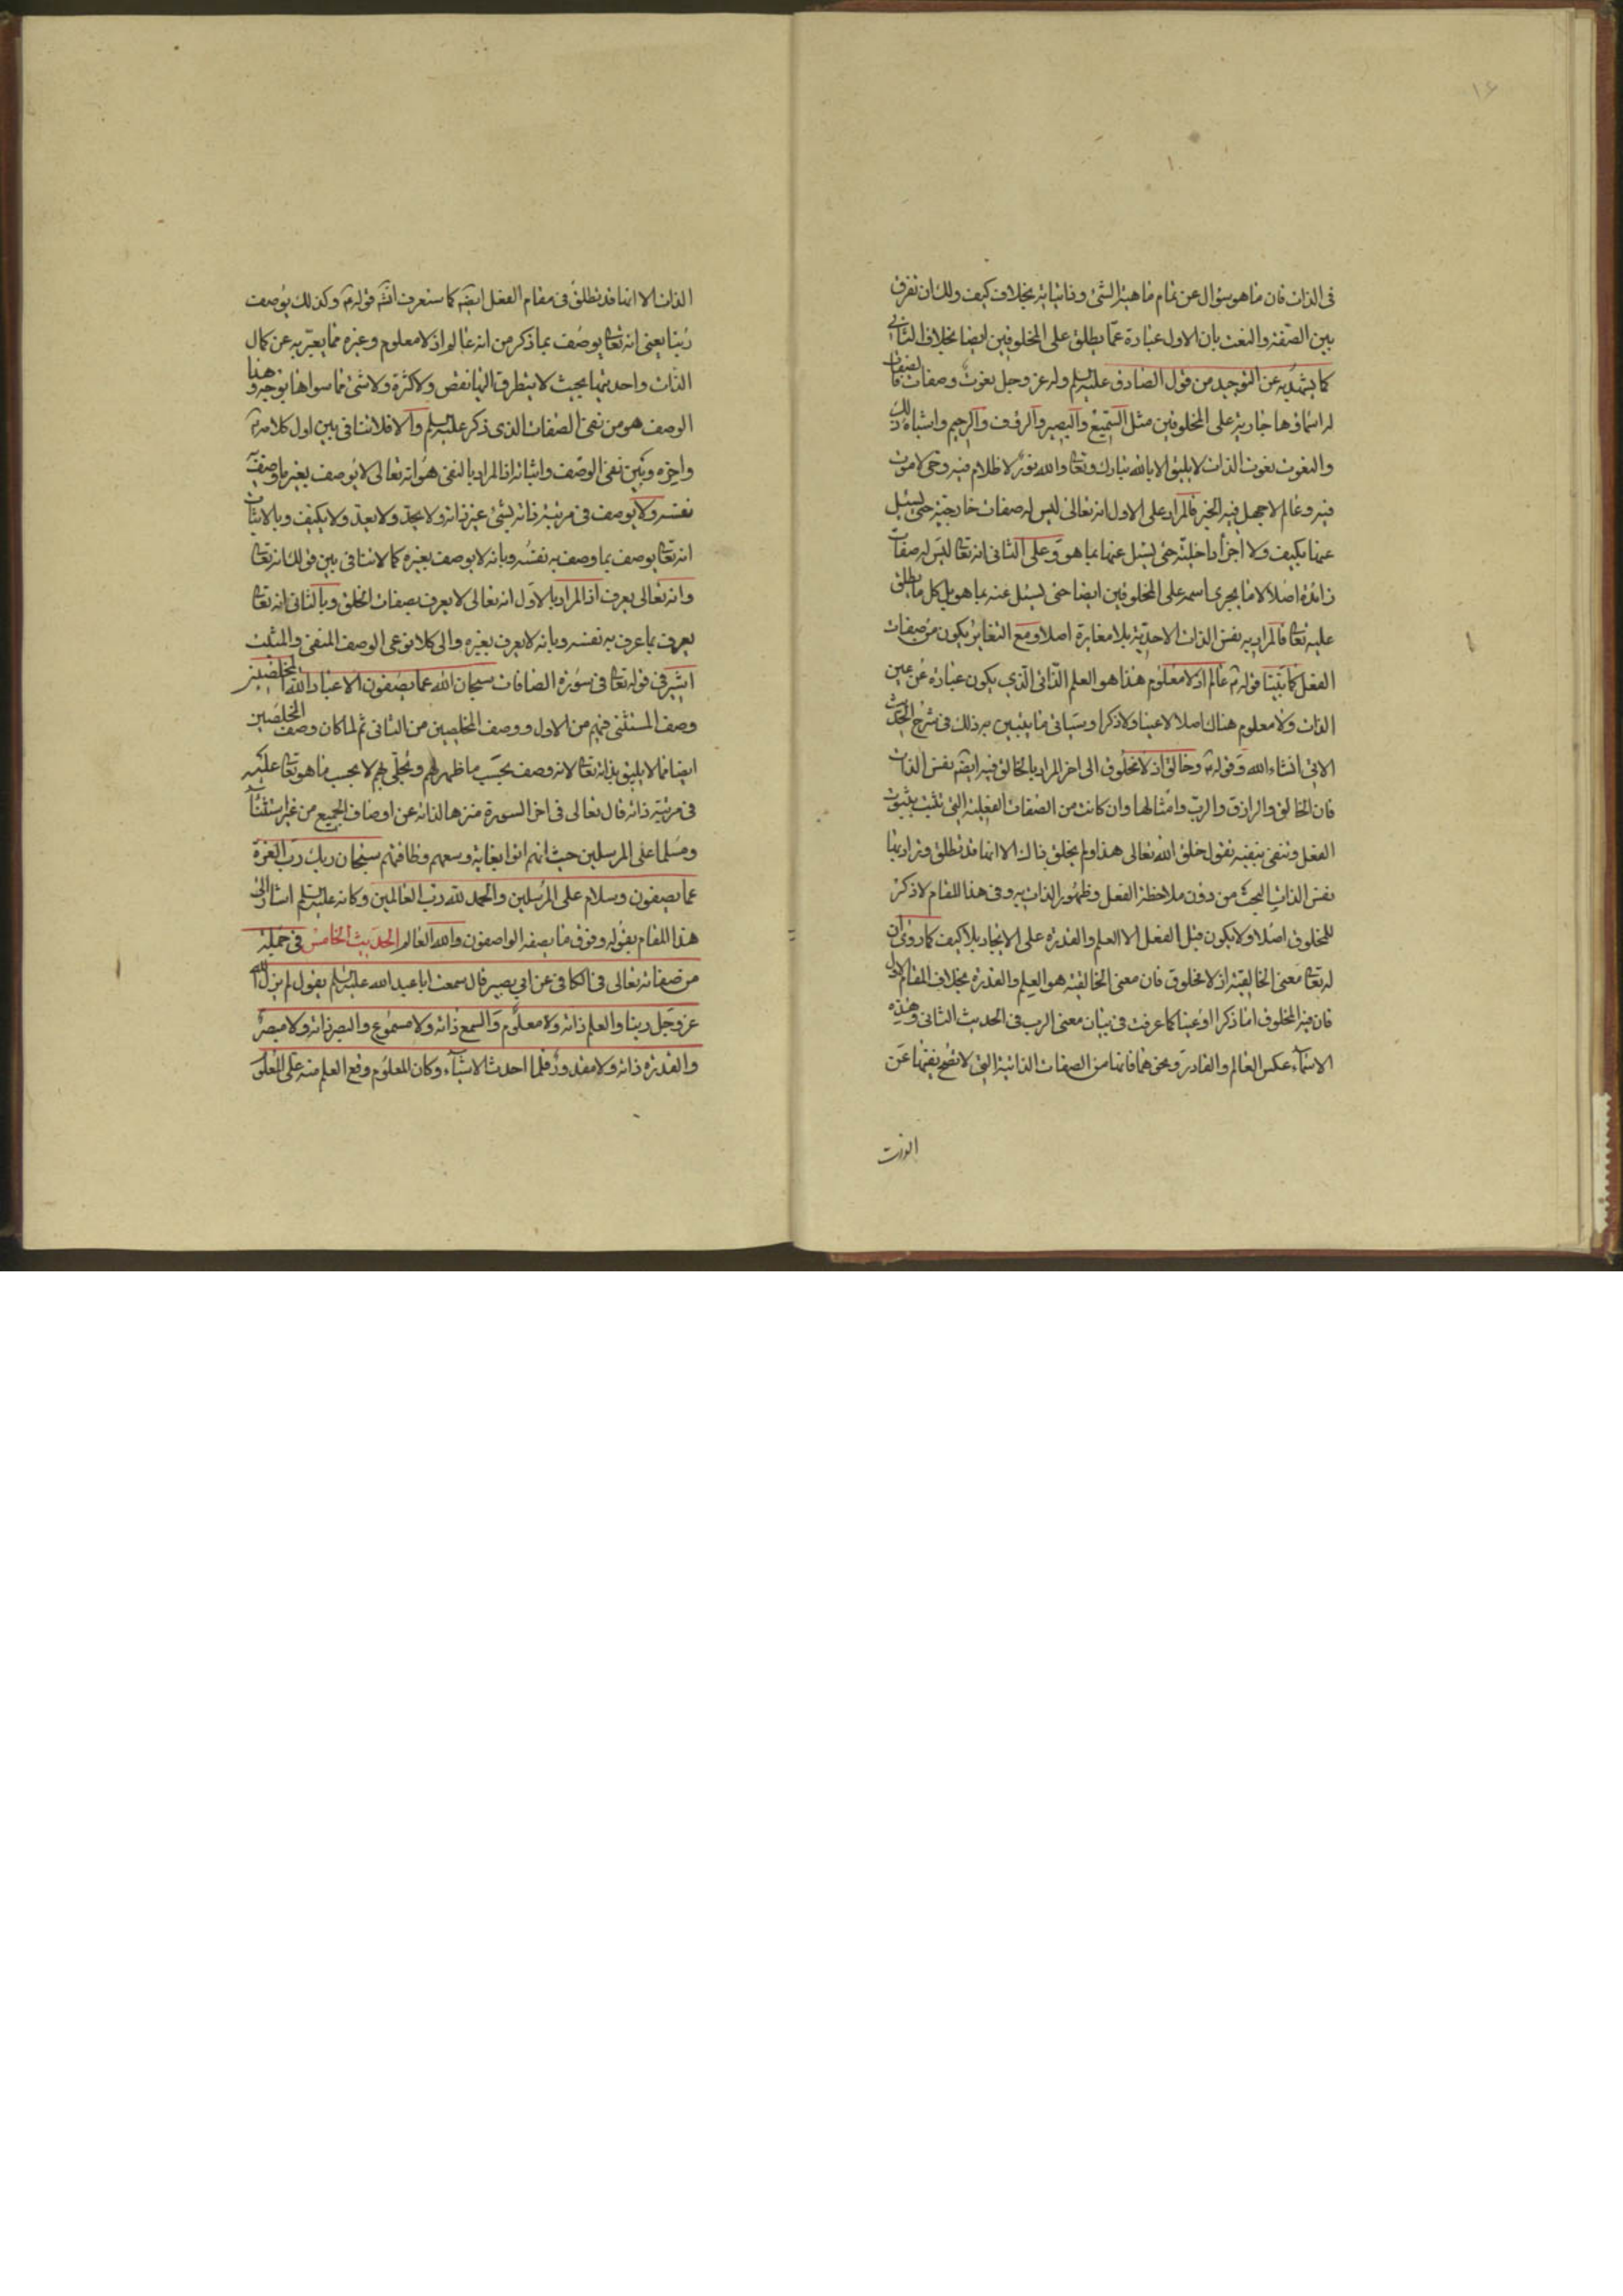 ١٤
فى الذات فان ما هو سؤال عن تمام ماهية الشئ وذاتياته بخلاف كيف ولك ان تفرق
بين الصفة والنعت بان الاول عبارة عما يطلق على المخلوقين ايضا بخلاف الثانى
كما يشهد به عن التوحيد من قول الصادق عليه السلم وله عز وجل نعوت وصفات فالصفات
له اسماؤها جارية على المخلوقين مثل السميع والبصير والرؤف والرحيم واشباه ذلك
والنعوت نعوت الذات لا يليق الا بالله تبارك وتعالى والله نور لا ظلام فيه وحى لا موت
فيه وعالم لا جهل فيه الخبر فالمراد على الاول انه تعالى ليس له صفات خارجية حتى يسئل
عنها بكيف ولا اجزأ داخلية حتى يسئل عنها بما هو وعلى الثانى انه تعالى ليس له صفات
زائدة اصلا لا ما يجرى اسمه على المخلوقين ايضا حتى يسئل عنه بما هو بل كل ما يطلق
عليه تعالى فالمراد به نفس الذات الاحدية بلا مغايرة اصلا ومع التغاير يكون من صفات
الفعل كما بينا قوله عالم اذ لا معلوم هذا هو العلم الذاتى الذى يكون عبارة عن عين
الذات ولا معلوم هناك اصلا لا عينا ولا ذكرا وسياتى ما يتبين به ذلك فى شرح الحديث
الاتى انشاء الله وقوله وخالق اذ لا مخلوق الى اخر المراد بالخالق فيه ايضا نفس الذات
فان الخالق والرازق والرب وامثالها وان كانت من الصفات الفعلية التى تثبت بثبوت
الفعل وتنفى بنفيه تقول خلق الله تعالى هذا ولم يخلق ذاك الا انها قد تطلق ويراد بها
نفس الذات البحت من دون ملاحظة الفعل وظهور الذات به وفى هذا المقام لا ذكر
للمخلوق اصلا ولا يكون قبل الفعل الا العلم والقدرة على الايجاد بلا كيف كما روى ان
له تعالى معنى الخالقية اذ لا مخلوق فان معنى الخالقية هو العلم والقدرة بخلاف المقام الاول
فان فيه المخلوق اما ذكرا او عينا كما عرفت فى بيان معنى الرب فى الحديث الثانى وهذه
الاسمآء عكس العالم والقادر ونحوهما فانها من الصفات الذاتية التى لا تصح نفيها عن
الذات
الذات الا انها قد تطلق فى مقام الفعل ايضا كما ستعرف انشآء قوله وكذلك يوصف
ربنا يعنى انه تعالى يوصف بما ذكر من انه عالم اذ لا معلوم وغيره مما يعبر به عن كمال
الذات واحديتها بحيث لا يتطرق اليها نقص ولا كثرة ولا شئ مما سواها بوجه وهذا
الوصف هو من نفى الصفات الذى ذكر عليه السلم والا فلا تنافى بين اول كلامه
واخره وبين نفى الوصف واثباته اذ المراد بالنفى هو انه تعالى لا يوصف بغير ما وصف به
نفسه ولا يوصف فى مرتبة ذاته بشئ غير ذاته ولا يحد ولا يعد ولا يكيف وبالاثبات
انه تعالى يوصف بما وصف به نفسه وبانه لا يوصف بغيره كما لا تنافى بين قولك انه تعالى
وانه تعالى يعرف اذ المراد بالاول انه تعالى لا يعرف بصفات الخلق وبالثانى انه تعالى
يعرف بما عرف به نفسه وبانه لا يعرف بغيره والى كلا نوعى الوصف المنفى والمثبت
اشير فى قوله تعالى فى سورة الصافات سبحان الله عما يصفون الا عباد الله المخلصين
وصف المستثنى منهم من الاول ووصف المخلصين من الثانى ثم لما كان وصف المخلصين
ايضا مما لا يليق بذاته تعالى لانه وصف بحسب ما ظهر لهم وتجلى لهم لا بحسب ما هو تعالى عليه
فى مرتبة ذاته قال تعالى فى اخر السورة منزها لذاته عن اوصاف الجميع من غير استثنآء
ومسلما على المرسلين حيث انهم اتوا بغاية وسعهم وطاقتهم سبحان ربك رب العزة
عما يصفون وسلام على المرسلين والحمد لله رب العالمين وكانه عليه السلم اشار الى
هذا المقام بقوله وفوق ما يصفه الواصفون والله العالم الحديث الخامس فى جملة
من صفاته تعالى فى الكافى عن ابي بصير قال سمعت ابا عبد الله عليه السلم يقول لم يزل الله
عز وجل ربنا والعلم ذاته ولا معلوم والسمع ذاته ولا مسموع والبصر ذاته ولا مبصر
والقدرة ذاته ولا مقدور فلما احدث الاشيآء وكان المعلوم وقع العلم منه على المعلوم